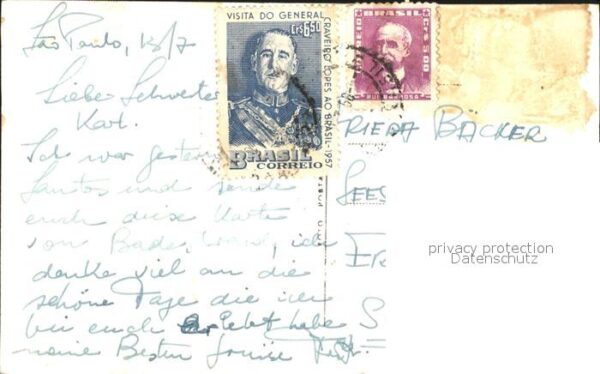 São Paulo, 13/7
Liebe Schwester
Karl.
Ich war gestern
Santos und sende
euch diese Karte
von Bade ich
denke viel an die
schöne Tage die ich
bei euch erlebt habe
meine Besten Louise
VISITA DO GENERAL
CRAVEIRO LOPES AO BRASIL-1957
Cr$ 6,50
BRASIL
CORREIO
BRASIL
CORREIO
Cr$ 5,00
RUI BARBOSA
FOTO POSTA
RIEDA BÄCKER
SEES
privacy protection
Datenschutz